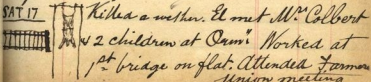 SAT 17
Killed a wether. El met Mrs Colbert
& 2 children at Ormd. Worked at
1st bridge on flat. Attended Farmers
Union meeting